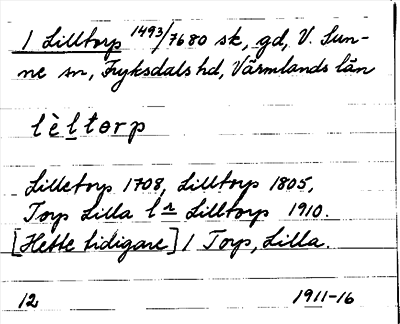 1 Lilltorp 1493/7680 sk, gd, V. Sun-
ne sn, Fryksdals hd, Värmlands län
lèltorp
Lilletorp 1708, Lilltorp 1805,
Torp Lilla l. Lilltorp 1910.
[Hette tidigare] 1 Torp, Lilla.
12 1911-16